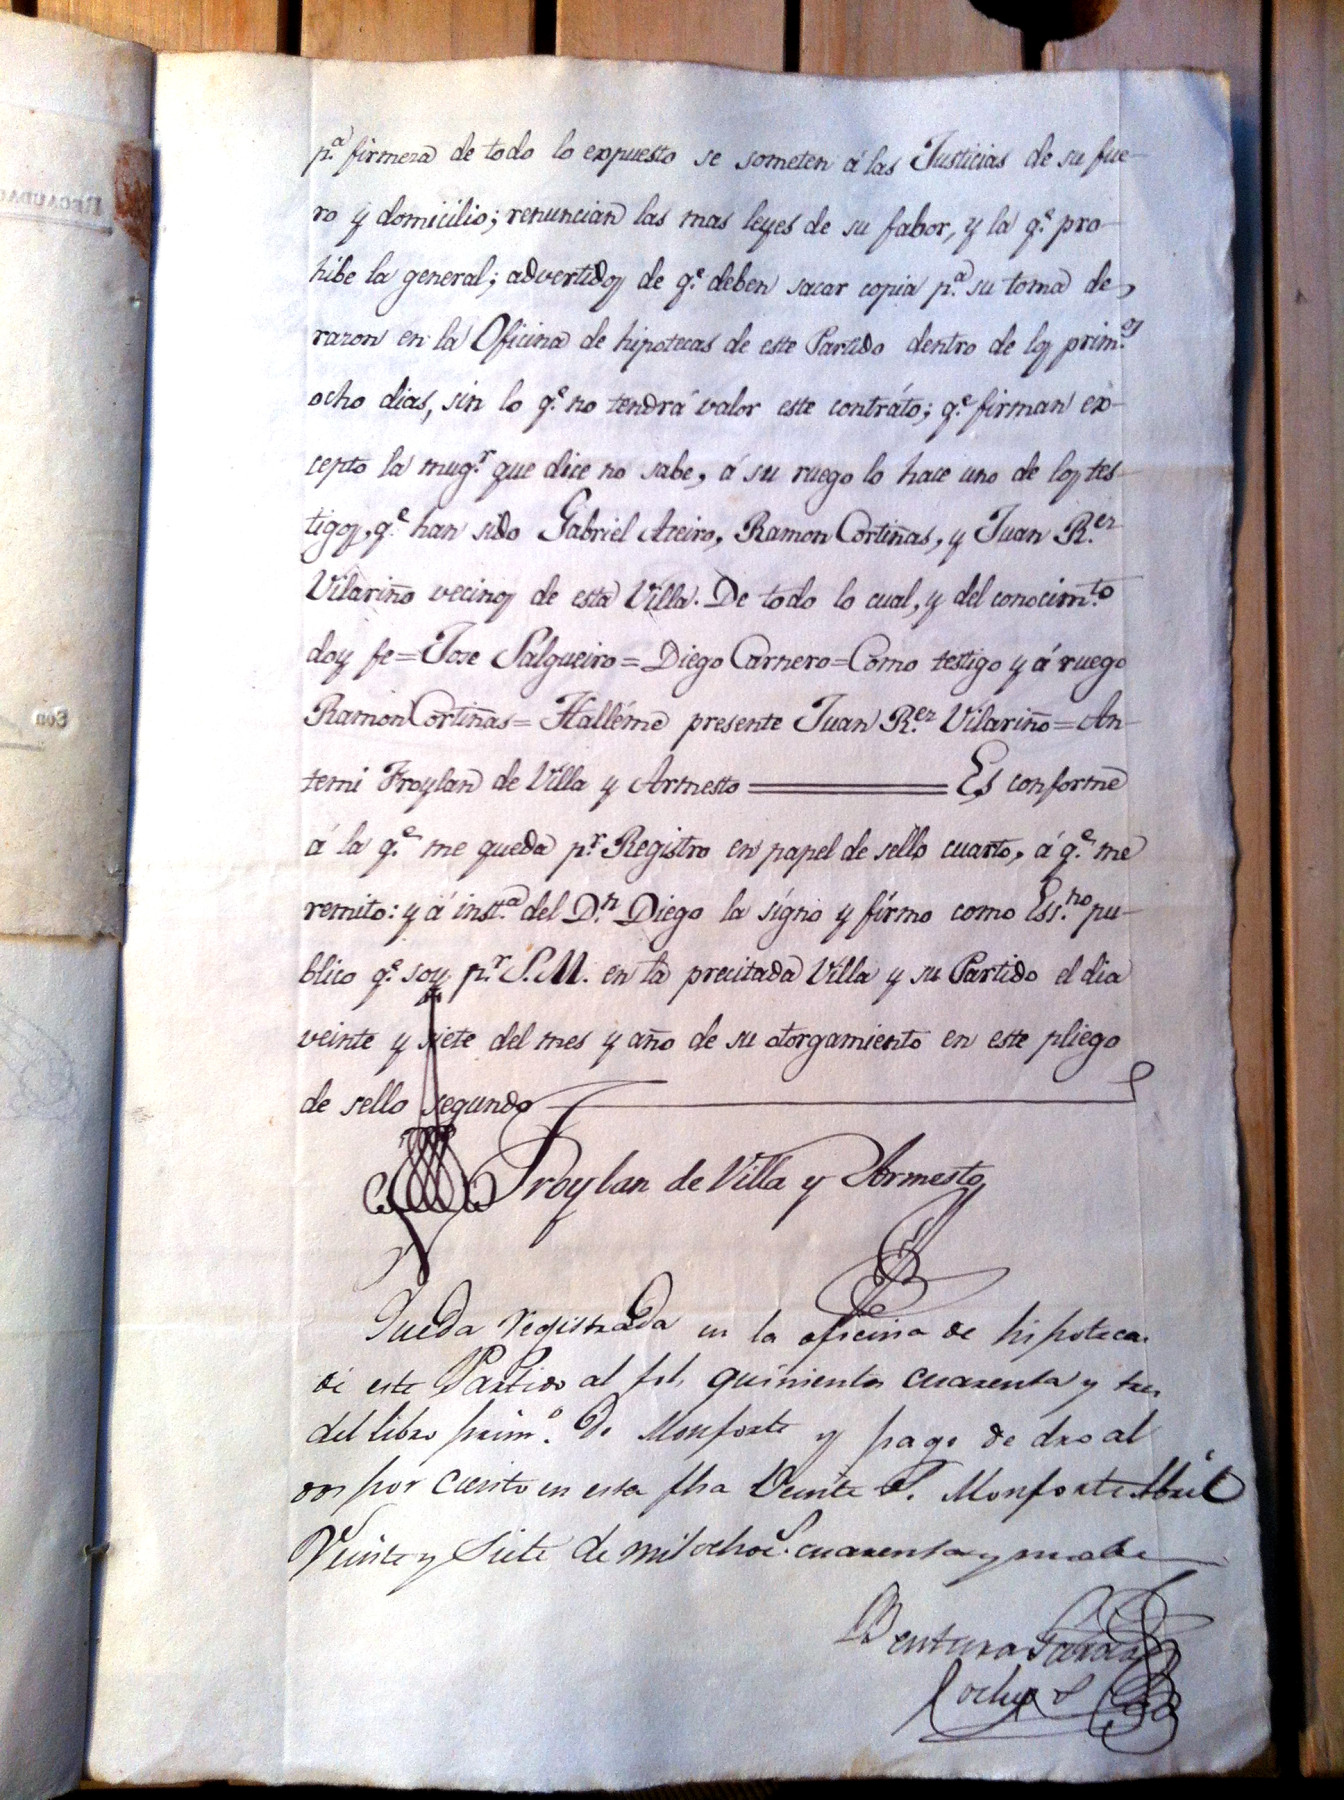 RECAUDA
Son
p.ª firmeza de todo lo expuesto se someten á las Justicias de su fue-
ro y domicilio; renuncian las mas leyes de su fabor, y la q.e pro-
hibe la general; advertidos de q.e deben sacar copia p.ª su toma de
razon en la Oficina de hipotecas de este Partido dentro de los prim.os
ocho dias, sin lo q.e no tendrá valor este contráto; q.e firman ex-
cepto la mug.r que dice no sabe, á su ruego lo hace uno de los tes-
tigos, q.e han sido Gabriel Aceiro, Ramon Cortiñas, y Juan R.ez
Vilariño vecinos de esta Villa. De todo lo cual, y del conocim.to
doy fe = Jose Salgueiro = Diego Carnero = Como testigo y á ruego
Ramon Cortiñas = Halléme presente Juan R.ez Vilariño = An-
temi Froylan de Villa y Armesto ═══ Es conforme
á la q.e me queda p.r Registro en papel de sello cuarto, á q.e me
remito: y á inst.ª del D.n Diego la signo y firmo como Ess.no pu-
blico q.e soy p.r S.M. en la precitada Villa y su Partido el dia
veinte y siete del mes y año de su otorgamiento en este pliego
de sello segundo
Froylan de Villa y Armesto
Queda registrada en la oficina de hipotecas
de este Partido al fol. quinientos cuarenta y tres
del libro prim.o de Monforte y pago de dro al
dos por ciento en esta fha Veinte Monforte Abril
Veinte y Siete de mil ochoc.s cuarenta y nuebe
Bentura